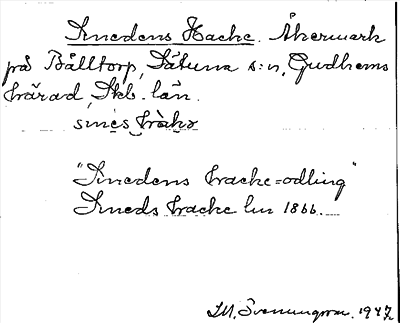 Smedens Hacke. Åkermark
på Bålltorp, Sätuna s:n, Gudhems
härad, Skb. län.
smes håkə
"Smedens hacke=odling"
Smeds hacke lm 1866.
I.M. Svenungsson. 1947.